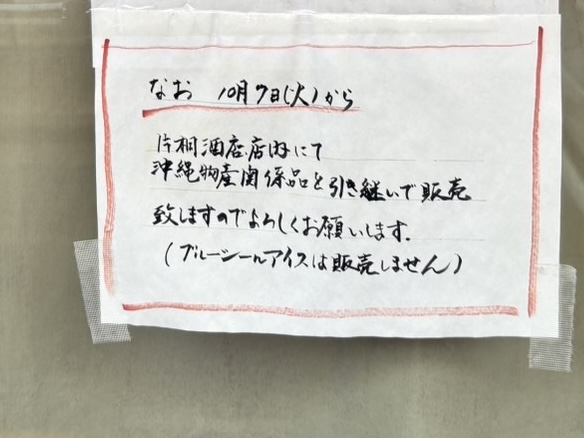 なお 10月7日(火)から
片桐酒店店内にて
沖縄物産関係品を引き継いで販売
致しますのでよろしくお願いします.
(ブルーシールアイスは販売しません)